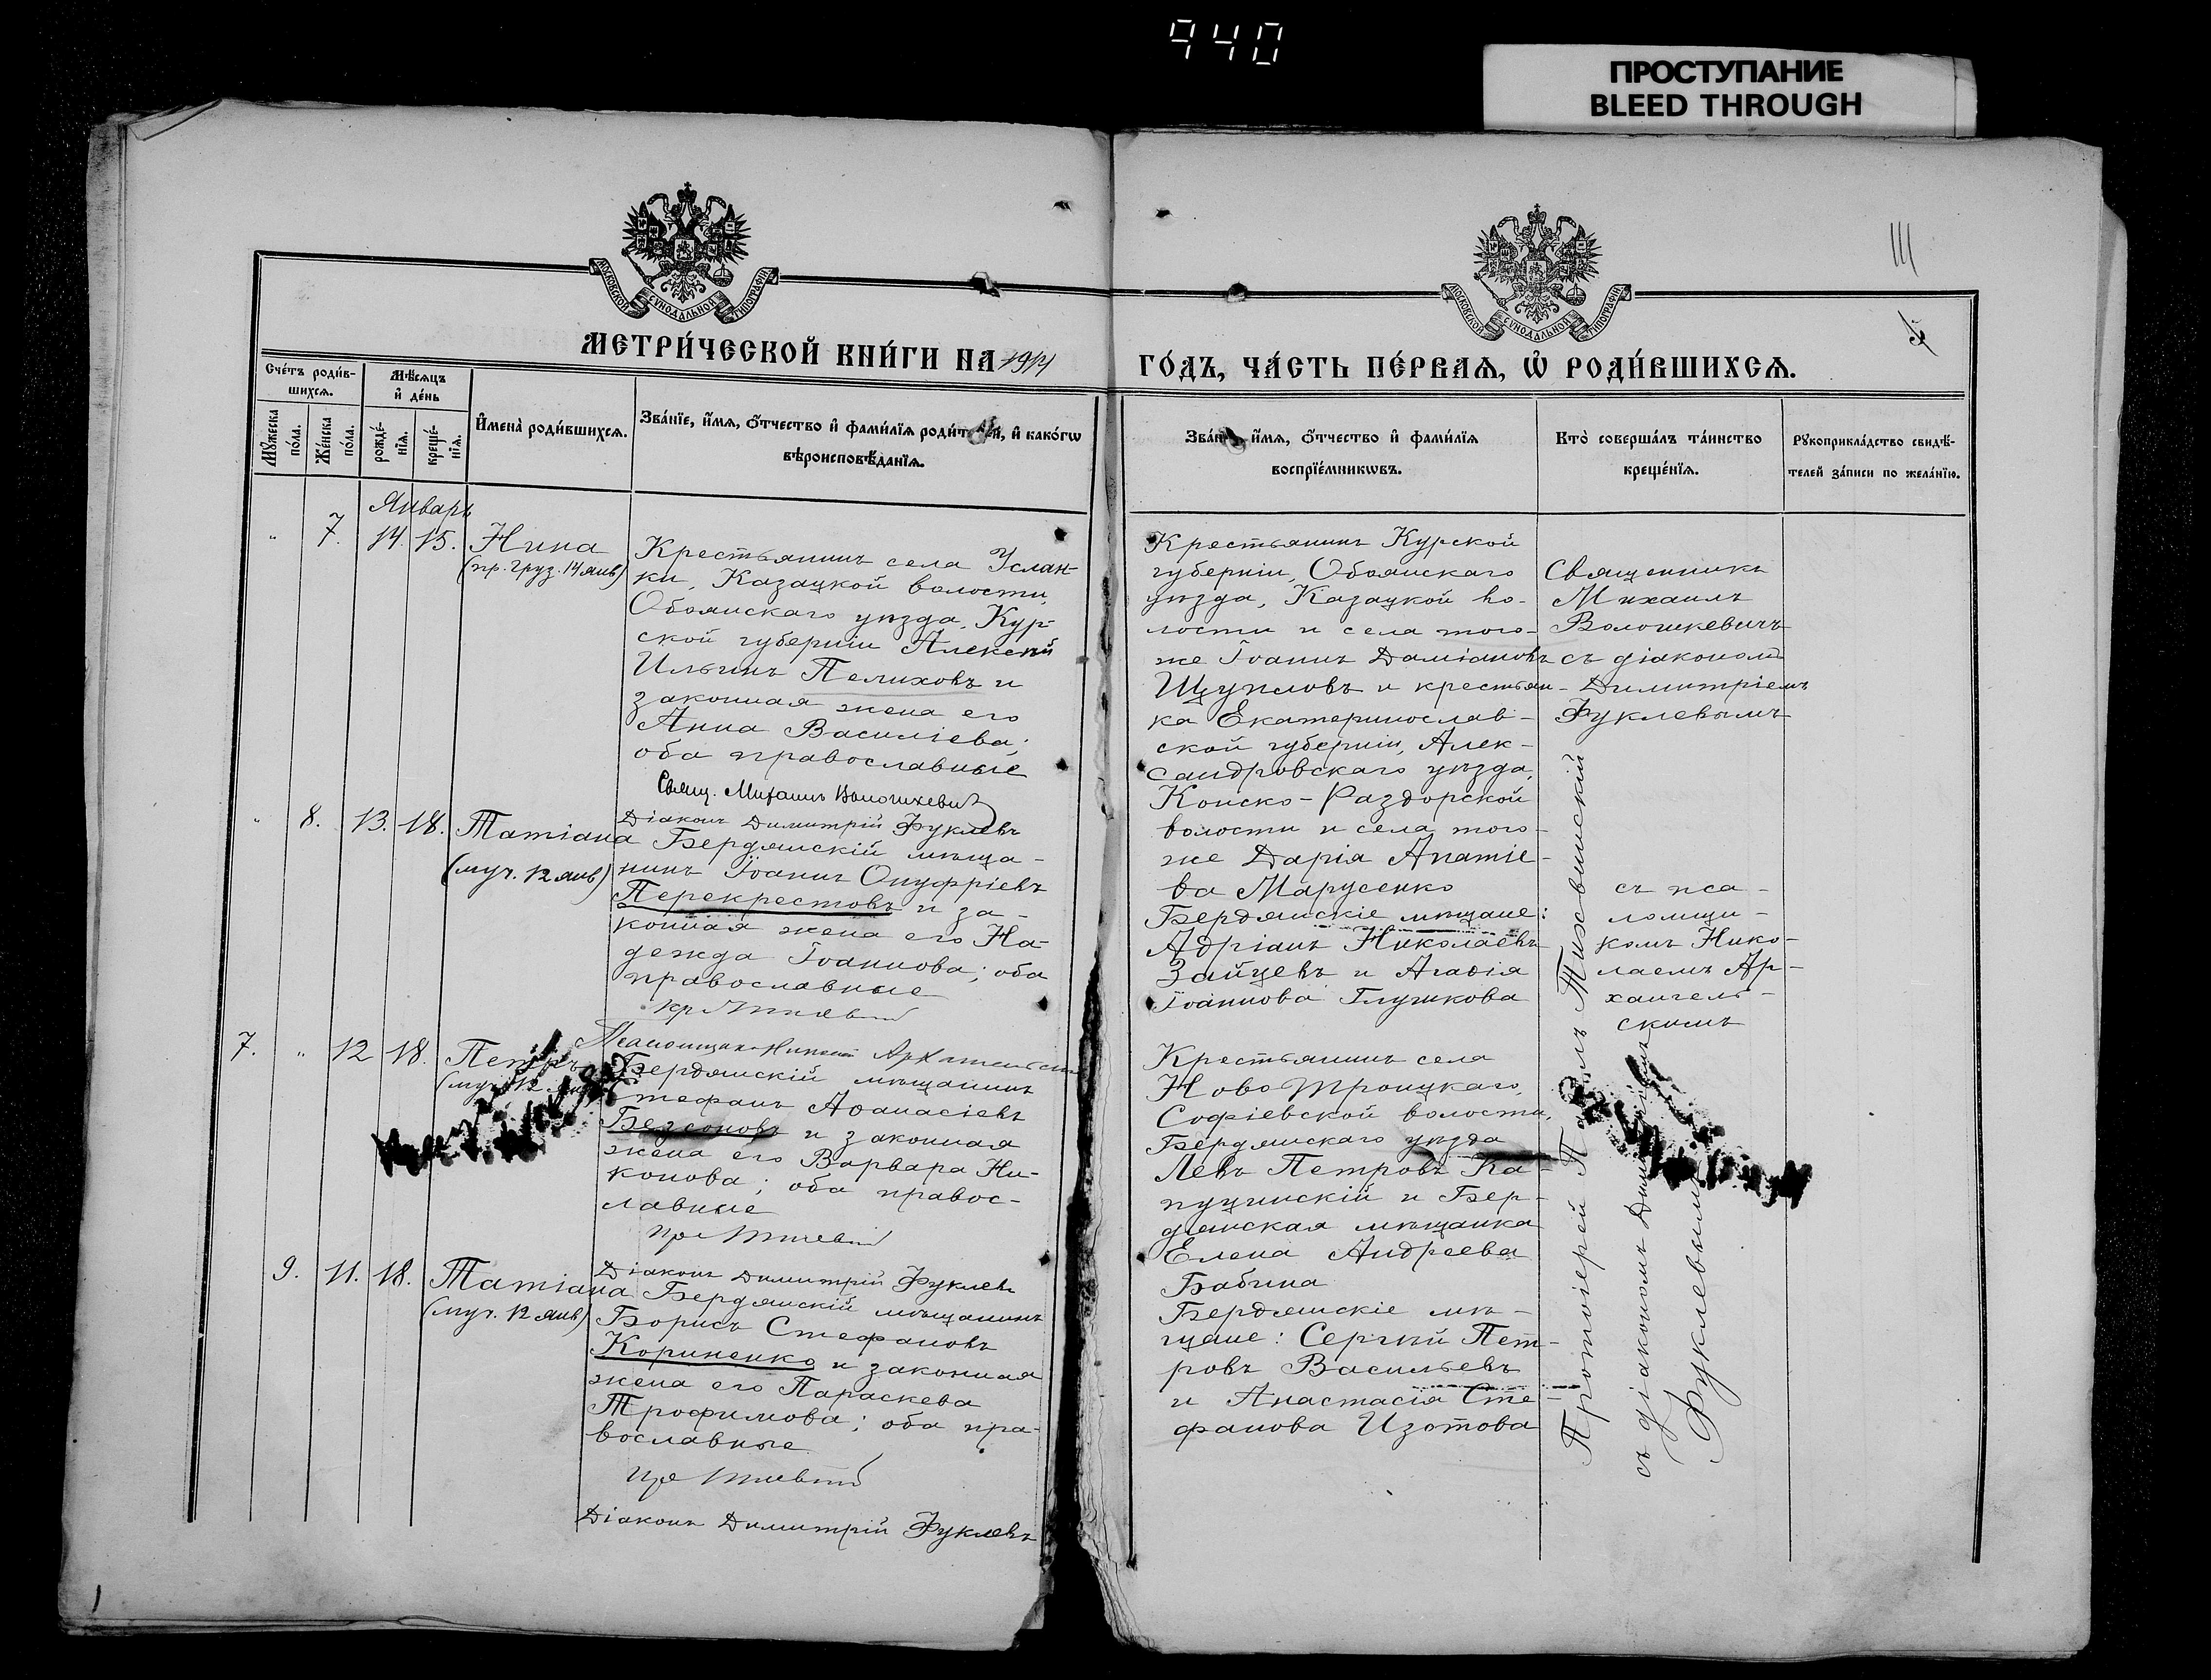 940
ПРОСТУПАНИЕ
BLEED THROUGH
МОСКОВСКОЙ СУНОДАЛЬНОЙ ТИПОГРАФІИ
МОСКОВСКОЙ СУНОДАЛЬНОЙ ТИПОГРАФІИ
МЕТРИ́ЧЕСКОЙ КНИ́ГИ НА 1914
ГО́ДЪ, ЧА́СТЬ ПЕ́РВАѦ, Ѽ РОДИ́ВШИХСѦ.
Сче́тъ роди́в-
шихсѧ.
Мꙋ́жеска
по́ла.
Же́нска
по́ла.
Мѣ́сѧцъ
и҆ де́нь
рожде́-
нїѧ.
креще́-
нїѧ.
И҆мена̀ роди́вшихсѧ.
Зва́нїе, и҆́мѧ, о҆́тчество и҆ фами́лїѧ роди́телей, и҆ како́гѡ
вѣроисповѣ́данїѧ.
Зва́нїе, и҆́мѧ, о҆́тчество и҆ фами́лїѧ
воспрїе́мникѡвъ.
Кто̀ соверша́лъ та́инство
креще́нїѧ.
Рꙋкоприкла́дство свидѣ́-
телей за́писи по жела́нїю.
Январь
" 7. 14. 15. Нина
(пр. груз. 14 янв)
Крестьянинъ села Услан-
ки, Казацкой волости,
Обоянскаго уѣзда, Кур-
ской губерніи Алексѣй
Ильинъ Пелиховъ и
законная жена его
Анна Василіева;
оба православные
Свящ. Михаилъ Волошкевичъ
Діаконъ Димитрій Фуклевъ
Крестьянинъ Курской
губерніи, Обоянскаго
уѣзда, Казацкой во-
лости и села того-
же Іоаннъ Даміановъ
Щупловъ и крестьян-
ка Екатеринослав-
ской губерніи, Алек-
сандровскаго уѣзда,
Конско-Раздорской
волости и села того-
же Дарія Ипатіе-
ва Марусенко
Священникъ
Михаилъ
Волошкевичъ
съ діакономъ
Димитріемъ
Фуклевымъ
" 8. 13. 18. Татіана
(муч. 12 янв)
Бердянскій мѣща-
нинъ Іоаннъ Онуфріевъ
Перекрестовъ и за-
конная жена его На-
дежда Іоаннова; оба
православные
Псаломщикъ Николай Архангельскій
Бердянскіе мѣщане:
Адріанъ Николаевъ
Зайцевъ и Агаѳія
Іоаннова Глушкова
съ пса-
ломщи-
комъ Нико-
лаемъ Ар-
хангель-
скимъ
7. " 12 18. Петръ
(муч. 12 янв)
Бердянскій мѣщанинъ
Стефанъ Аѳанасіевъ
Безсоновъ и законная
жена его Варвара Ни-
конова; оба правос-
лавные
Діаконъ Димитрій Фуклевъ
Крестьянинъ села
Ново Троицкаго,
Софіевской волости,
Бердянскаго уѣзда
Левъ Петровъ Ка-
пущинскій и Бер-
дянская мѣщанка
Елена Андреева
Бабина
9. 11. 18. Татіана
(муч. 12 янв)
Бердянскій мѣщанинъ
Борисъ Стефановъ
Кориненко и законная
жена его Параскева
Трофимова; оба пра-
вославные
Діаконъ Димитрій Фуклевъ
Бердянскіе мѣ-
щане: Сергѣй Пет-
ровъ Васильевъ
и Анастасія Сте-
фанова Изотова
Протоіерей Павелъ Тихвинскій
съ діакономъ Димитріемъ
Фуклевымъ